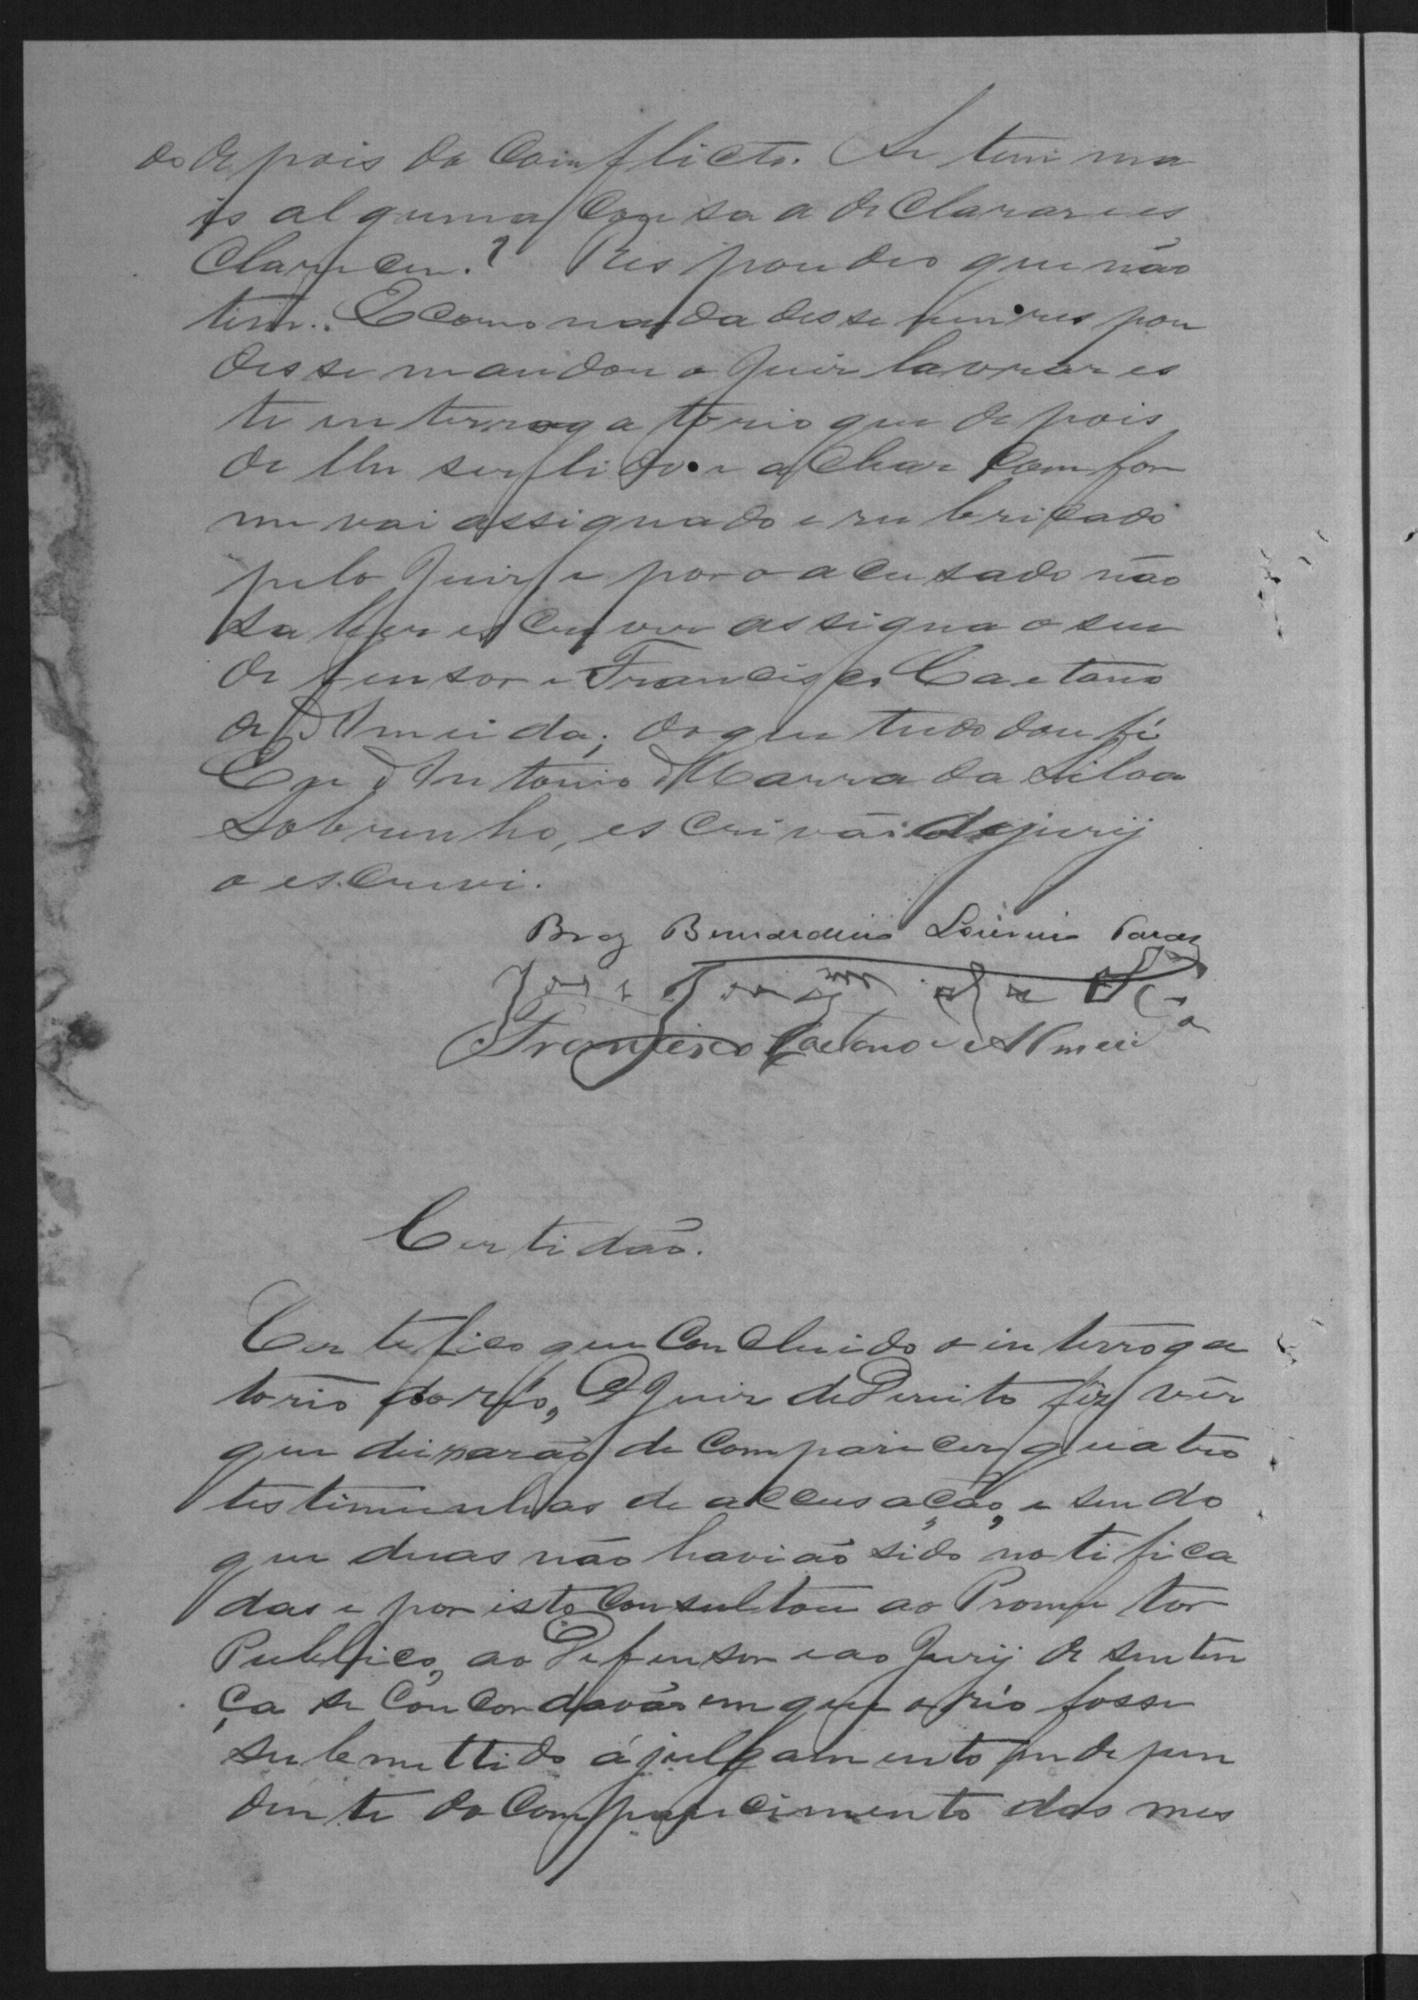 do depois do comflicto. Se tem ma
is alguma cousa a declarar e es
clarecer.? Respondeo que não
tem. E como nada desse nem respon
desse mandou o Juir lavrar es
te interrogatorio que depois
de lhe ser lido e achar comfor
me vai assignado e rubricado
pelo Juir e por o acusado não
saber escrever assigna o seu
defensor e Francisco Caetano
de Almeida; do que tudo dou fé
Eu Antonio Marra da Silva
Sobrinho, escrivão do jury
o escrevi.
Braz Bernardino Loureiro
José
Francisco Caetano de Almeid
Certidão.
Certefico que concluido o interroga
torio do réo, O Juir de Direito fez vêr
que deixarão de comparecer quatro
testimunhas de accusação, e sendo
que duas não havião sido notifica
das e por isto consultou ao Promotor
Publico, ao Defensor e ao Jury de senten
ça se concordavão em que o réo fosse
submettido á julgamento independen
dente do comparecimento das mes